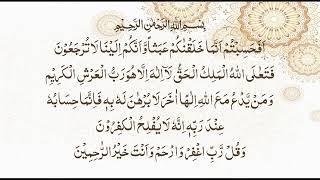 بِسْمِ اللهِ الرَّحْمٰنِ الرَّحِيْمِ
اَفَحَسِبْتُمْ اَنَّمَا خَلَقْنٰكُمْ عَبَثًا وَّاَنَّكُمْ اِلَيْنَا لَا تُرْجَعُوْنَ
فَتَعٰلَى اللهُ الْمَلِكُ الْحَقُّ لَآ اِلٰهَ اِلَّا هُوَ رَبُّ الْعَرْشِ الْكَرِيْمِ
وَمَنْ يَّدْعُ مَعَ اللهِ اِلٰهًا اٰخَرَ لَا بُرْهَانَ لَهٗ بِهٖ فَاِنَّمَا حِسَابُهٗ
عِنْدَ رَبِّهٖ اِنَّهٗ لَا يُفْلِحُ الْكٰفِرُوْنَ
وَقُلْ رَّبِّ اغْفِرْ وَارْحَمْ وَاَنْتَ خَيْرُ الرّٰحِمِيْنَ